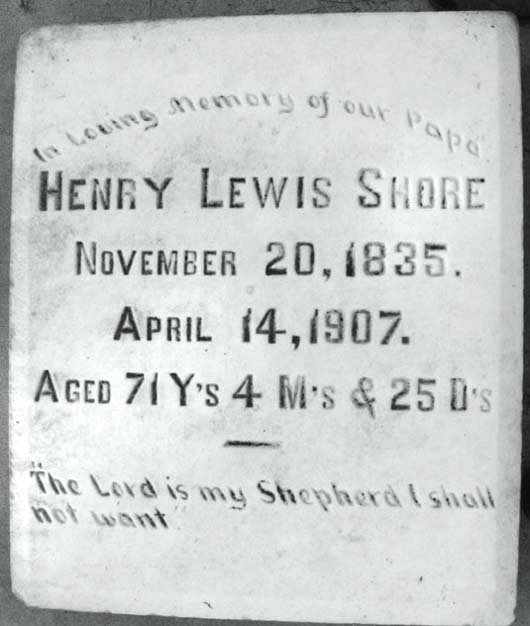 In Loving Memory of our Papa
HENRY LEWIS SHORE
NOVEMBER 20, 1835.
APRIL 14, 1907.
AGED 71 Y's 4 M's & 25 D's
"The Lord is my Shepherd I shall
not want"